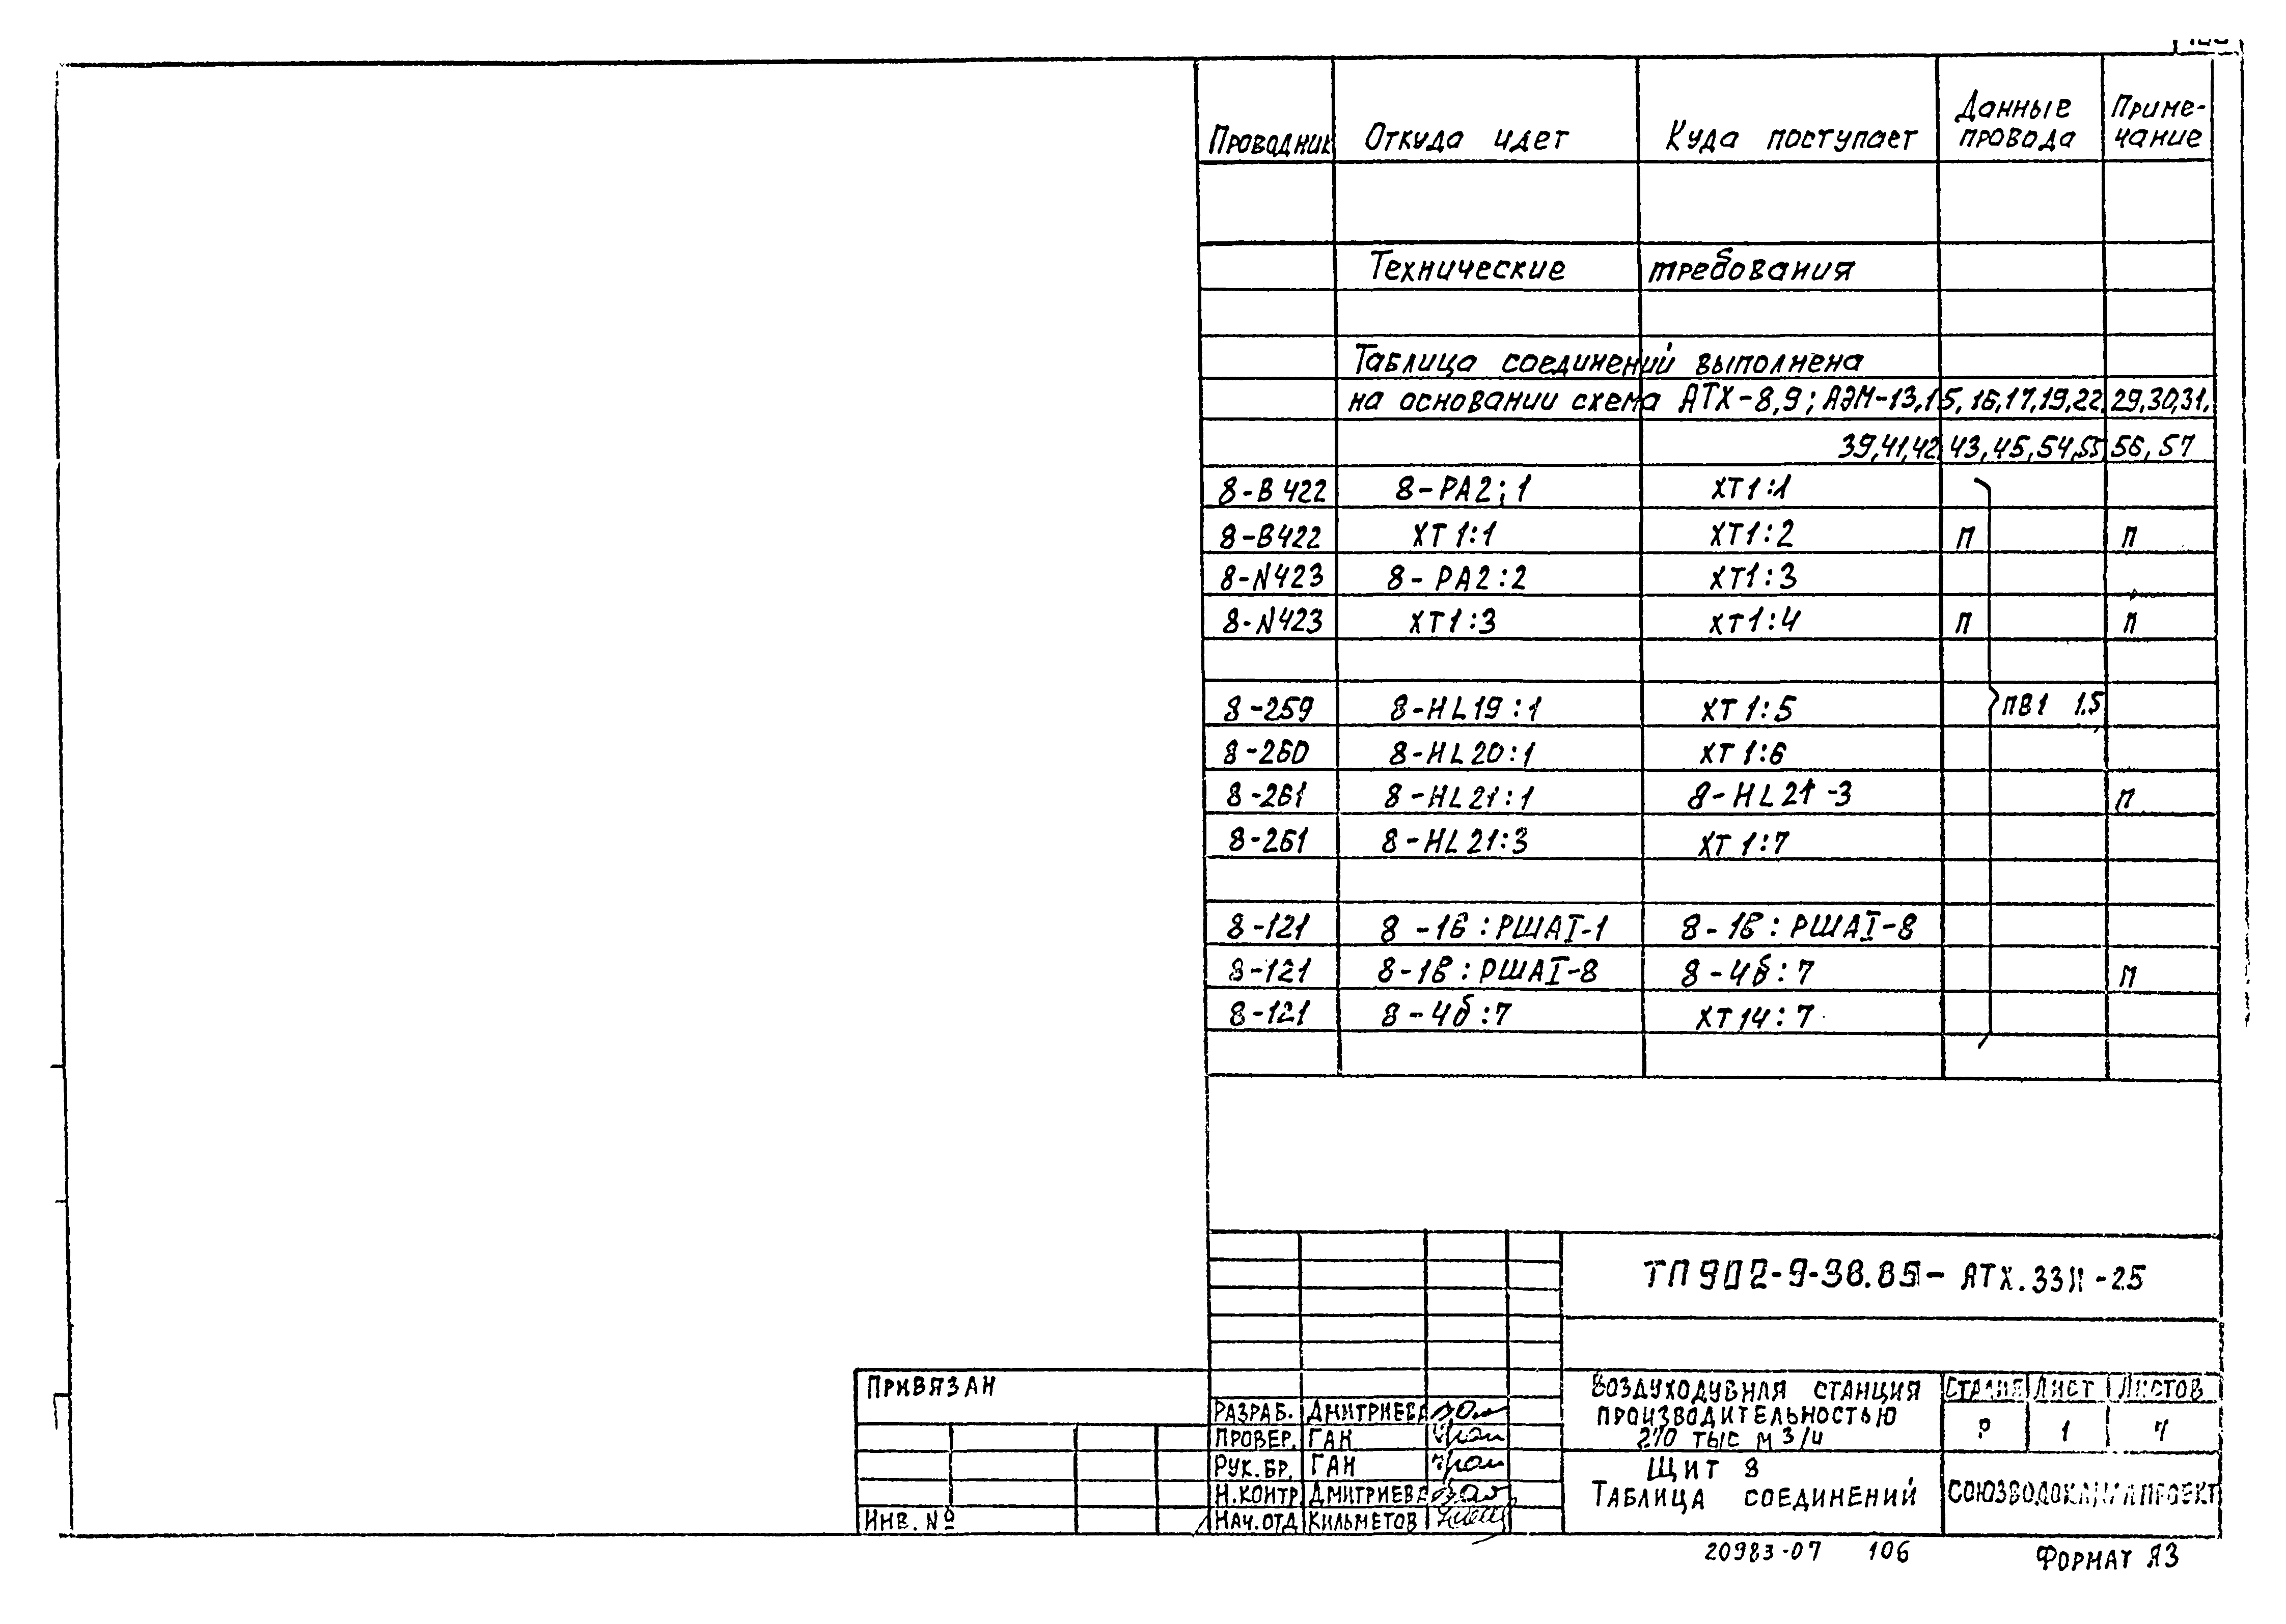 Проводник Откуда идет Куда поступает Данные провода Примечание
Технические требования
Таблица соединений выполнена
на основании схема АТХ-8,9; АЭМ-13,15,16,17,19,22,29,30,31,
39,41,42,43,45,54,55,56,57
8-В422 8-РА2;1 ХТ1:1
8-В422 ХТ1:1 ХТ1:2 П П
8-N423 8-РА2:2 ХТ1:3
8-N423 ХТ1:3 ХТ1:4 П П
8-259 8-HL19:1 ХТ1:5 ПВ1 1,5
8-260 8-HL20:1 ХТ1:6
8-261 8-HL21:1 8-HL21-3 П
8-261 8-HL21:3 ХТ1:7
8-121 8-1в:РШАI-1 8-1в:РШАI-8
8-121 8-1в:РШАI-8 8-4б:7 П
8-121 8-4б:7 ХТ14:7
ТП902-9-38.85- АТХ.33И-25
ПРИВЯЗАН
ИНВ. №
РАЗРАБ. ДМИТРИЕВА
ПРОВЕР. ГАН
РУК.БР. ГАН
Н.КОНТР ДМИТРИЕВА
НАЧ.ОТД КИЛЬМЕТОВ
ВОЗДУХОДУВНАЯ СТАНЦИЯ
ПРОИЗВОДИТЕЛЬНОСТЬЮ
210 ТЫС М3/Ч
СТАДИЯ ЛИСТ ЛИСТОВ
Р 1 4
ЩИТ 8
ТАБЛИЦА СОЕДИНЕНИЙ
СОЮЗВОДОКАНАЛПРОЕКТ
20983-07 106 ФОРМАТ А3